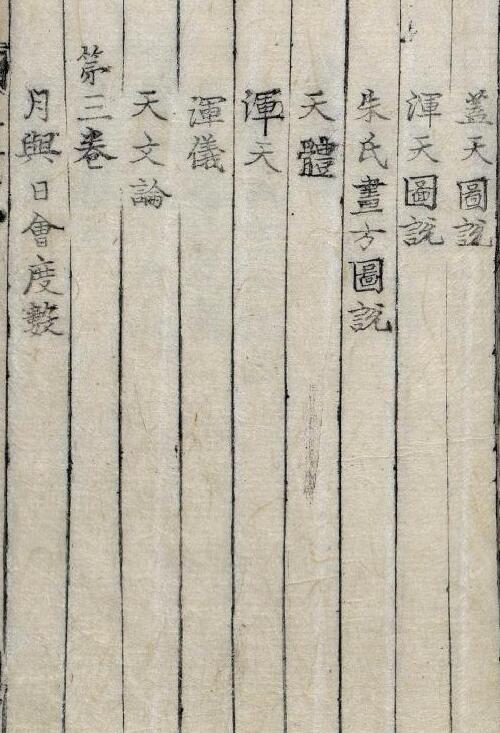 蓋天圖説
渾天圖説
朱氏晝方圖説
天體
渾天
渾儀
天文論
第三卷
月與日會度數